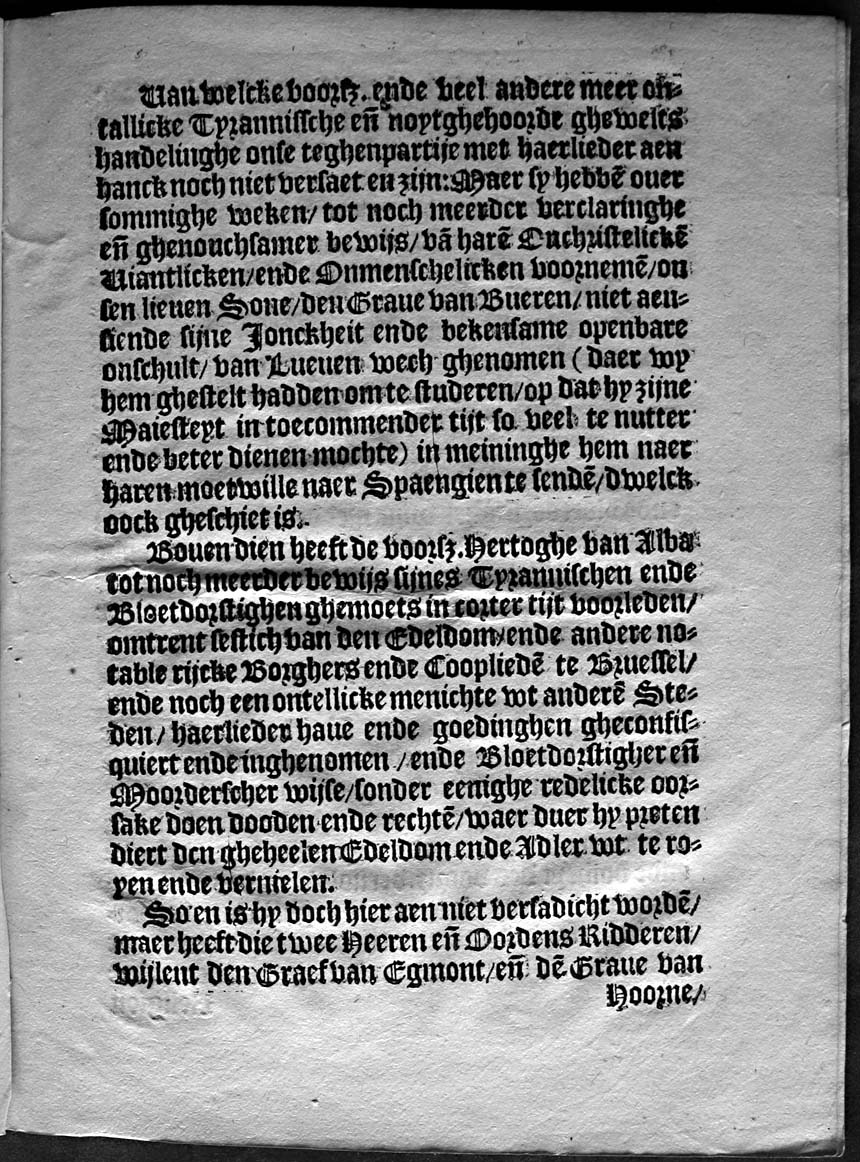 Van welcke voorſz. ende veel andere meer on⸗
tallicke Tyranniſſche eñ noytghehoorde ghewelts
handelinghe onſe teghenpartije met haerlieder aen
hanck noch niet verſaet en zijn: Maer ſy hebbẽ ouer
ſommighe weken/ tot noch meerder verclaringhe
eñ ghenouchſamer bewijs/ vã harẽ Onchriſtelickẽ
Viantlicken/ ende Onmenſchelicken voornemẽ/ on
ſen lieuen Sone/ den Graue van Bueren/ niet aen⸗
ſiende ſijne Jonckheit ende bekenſame openbare
onſchult/ van Lueuen wech ghenomen (daer wy
hem gheſtelt hadden om te ſtuderen/ op dat hy zijne
Maieſteyt in toecommender tijt ſo veel te nutter
ende beter dienen mochte) in meininghe hem naer
haren moetwille naer Spaengien te ſendẽ/ dwelck
oock gheſchiet is.
Bouen dien heeft de voorſz. Hertoghe van Alba
tot noch meerder bewijs ſijnes Tyranniſchen ende
Bloetdorſtighen ghemoets in corter tijt voorleden/
omtrent ſeſtich van den Edeldom/ ende andere no⸗
table rijcke Borghers ende Coopliedẽ te Brueſſel/
ende noch een ontellicke menichte wt anderẽ Ste⸗
den/ haerlieder haue ende goedinghen gheconfiſ⸗
quiert ende inghenomen/ ende Bloetdorſtigher eñ
Moorderſcher wijſe/ ſonder eenighe redelicke oor⸗
ſake doen dooden ende rechtẽ/ waer duer hy preten
diert den gheheelen Edeldom ende Adler wt te ro⸗
yen ende vernielen.
So en is hy doch hier aen niet verſadicht wordẽ/
maer heeft die twee Heeren eñ Oordens Ridderen/
wijlent den Graef van Egmont/ eñ dẽ Graue van
Hoorne/